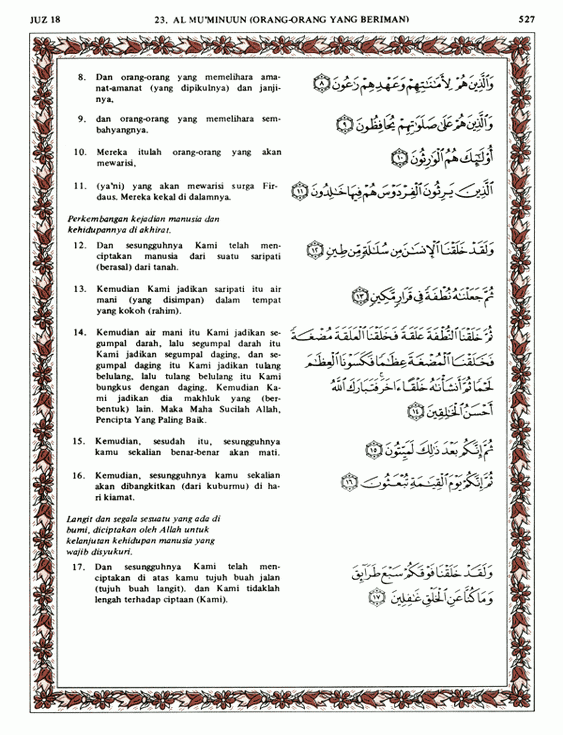 JUZ 18 23. AL MU'MINUUN (ORANG-ORANG YANG BERIMAN) 527
8. Dan orang-orang yang memelihara ama-
nat-amanat (yang dipikulnya) dan janji-
nya,
وَٱلَّذِينَ هُمْ لِأَمَـٰنَـٰتِهِمْ وَعَهْدِهِمْ رَٰعُونَ ٨
9. dan orang-orang yang memelihara sem-
bahyangnya.
وَٱلَّذِينَ هُمْ عَلَىٰ صَلَوَٰتِهِمْ يُحَافِظُونَ ٩
10. Mereka itulah orang-orang yang akan
mewarisi,
أُو۟لَـٰٓئِكَ هُمُ ٱلْوَٰرِثُونَ ١٠
11. (ya'ni) yang akan mewarisi surga Fir-
daus. Mereka kekal di dalamnya.
ٱلَّذِينَ يَرِثُونَ ٱلْفِرْدَوْسَ هُمْ فِيهَا خَـٰلِدُونَ ١١
Perkembangan kejadian manusia dan
kehidupannya di akhirat.
12. Dan sesungguhnya Kami telah men-
ciptakan manusia dari suatu saripati
(berasal) dari tanah.
وَلَقَدْ خَلَقْنَا ٱلْإِنسَـٰنَ مِن سُلَـٰلَةٍ مِّن طِينٍ ١٢
13. Kemudian Kami jadikan saripati itu air
mani (yang disimpan) dalam tempat
yang kokoh (rahim).
ثُمَّ جَعَلْنَـٰهُ نُطْفَةً فِى قَرَارٍ مَّكِينٍ ١٣
14. Kemudian air mani itu Kami jadikan se-
gumpal darah, lalu segumpal darah itu
Kami jadikan segumpal daging, dan se-
gumpal daging itu Kami jadikan tulang
belulang, lalu tulang belulang itu Kami
bungkus dengan daging. Kemudian Ka-
mi jadikan dia makhluk yang (ber-
bentuk) lain. Maka Maha Sucilah Allah,
Pencipta Yang Paling Baik.
ثُمَّ خَلَقْنَا ٱلنُّطْفَةَ عَلَقَةً فَخَلَقْنَا ٱلْعَلَقَةَ مُضْغَةً
فَخَلَقْنَا ٱلْمُضْغَةَ عِظَـٰمًا فَكَسَوْنَا ٱلْعِظَـٰمَ
لَحْمًا ثُمَّ أَنشَأْنَـٰهُ خَلْقًا ءَاخَرَ ۚ فَتَبَارَكَ ٱللَّهُ
أَحْسَنُ ٱلْخَـٰلِقِينَ ١٤
15. Kemudian, sesudah itu, sesungguhnya
kamu sekalian benar-benar akan mati.
ثُمَّ إِنَّكُم بَعْدَ ذَٰلِكَ لَمَيِّتُونَ ١٥
16. Kemudian, sesungguhnya kamu sekalian
akan dibangkitkan (dari kuburmu) di ha-
ri kiamat.
ثُمَّ إِنَّكُمْ يَوْمَ ٱلْقِيَـٰمَةِ تُبْعَثُونَ ١٦
Langit dan segala sesuatu yang ada di
bumi, diciptakan oleh Allah untuk
kelanjutan kehidupan manusia yang
wajib disyukuri.
17. Dan sesungguhnya Kami telah men-
ciptakan di atas kamu tujuh buah jalan
(tujuh buah langit). dan Kami tidaklah
lengah terhadap ciptaan (Kami).
وَلَقَدْ خَلَقْنَا فَوْقَكُمْ سَبْعَ طَرَآئِقَ
وَمَا كُنَّا عَنِ ٱلْخَلْقِ غَـٰفِلِينَ ١٧